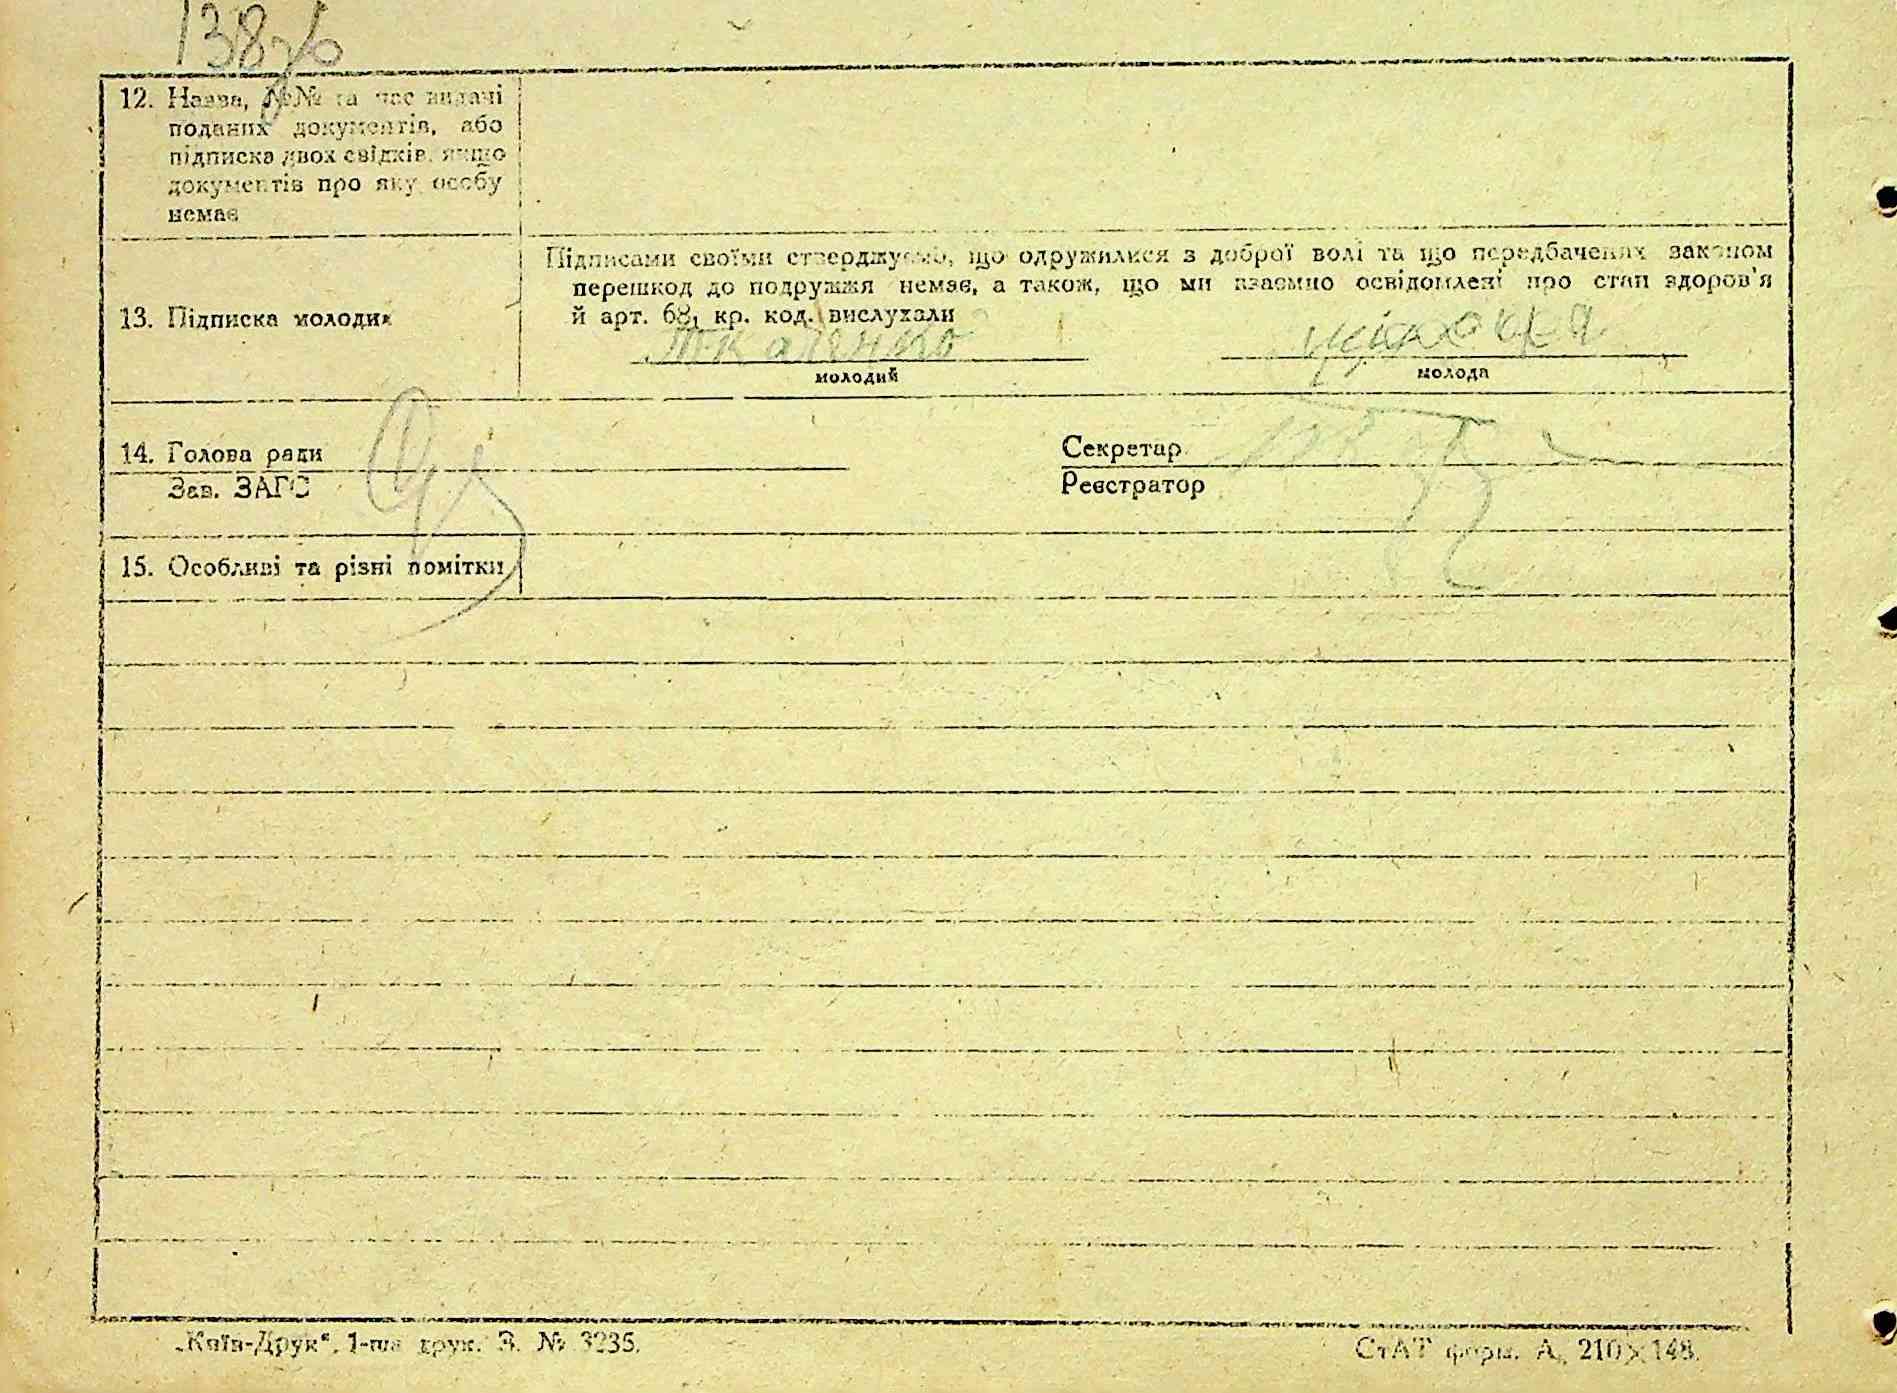 12. Назва, №№ та час видачі
поданих документів, або
підписка двох свідків, якщо
документів про яку особу
немає
Підписами своїми стверджуємо, що одружилися з доброї волі та що передбачених законом
перешкод до подружжя немає, а також, що ми взаємно освідомлені про стан здоров'я
13. Підписка молодих
й арт. 68₁ кр. код. вислухали
Ткаченко
молодий
молода
14. Голова ради
Секретар
Зав. ЗАГС
Реєстратор
15. Особливі та різні помітки
„Київ-Друк“, 1-ша друк. З. № 3235.
СтАТ форм. А, 210×148.